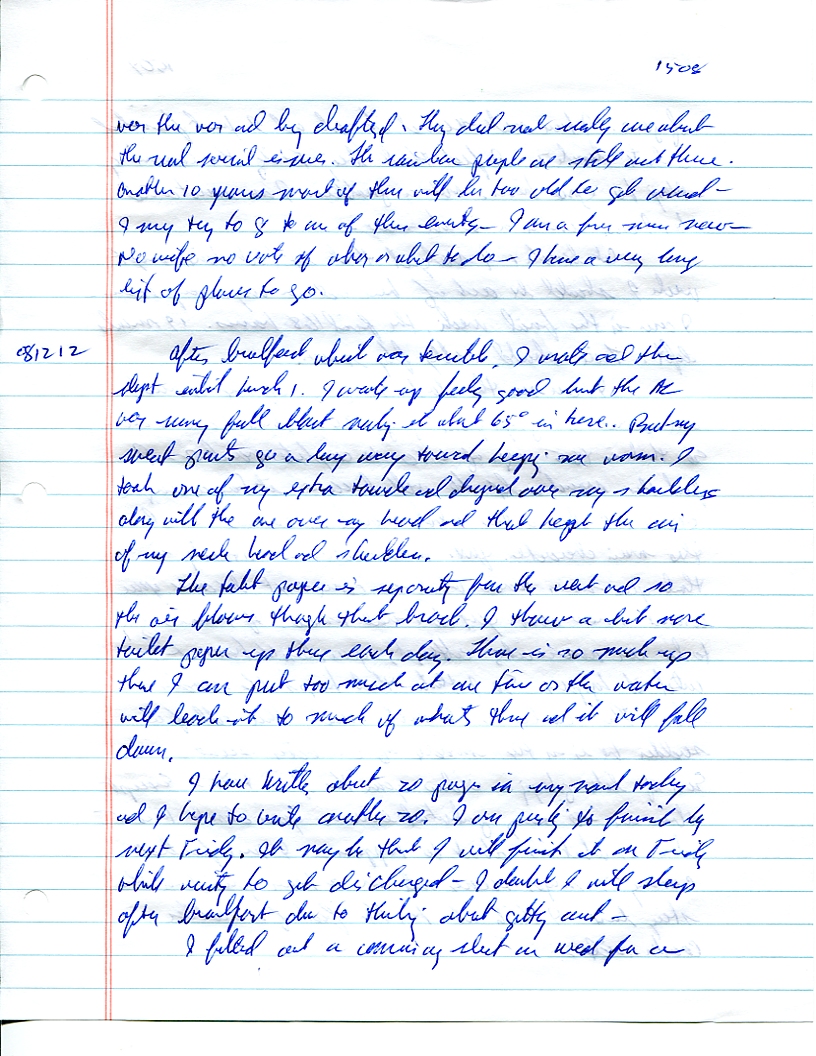 1508
over the war and being drafted. They did not really care about
the real social issues. The rainbow people are still out there.
Another 10 years most of them will be too old to get around -
I may try to go to one of their events - I am a free man now -
No wife no vote of when or what to do - I have a very long
list of places to go.
081212
After breakfast which was terrible, I wrote and then
slept until lunch. I woke up feeling good but the AC
was running full blast making it about 65° in here. But my
sweat pants go a long way toward keeping me warm. I
took one of my extra towels and draped over my shoulders
along with the one over my head and that kept the air
of my neck head and shoulders.
The toilet paper is separating from the vent and so
the air blows though that crack. I throw a bit more
toilet paper up there each day. There is so much up
there I can put too much at one time or the water
will leach it to much of whats there and it will fall
down.
I have written about 20 pages in my novel today
and I hope to write another 20. I am to finish by
next Friday. It may be that I will finish it on Friday
while waiting to get discharged - I doubt I will sleep
after breakfast due to thinking about getting out -
I filled out a commissary sheet on wed for a